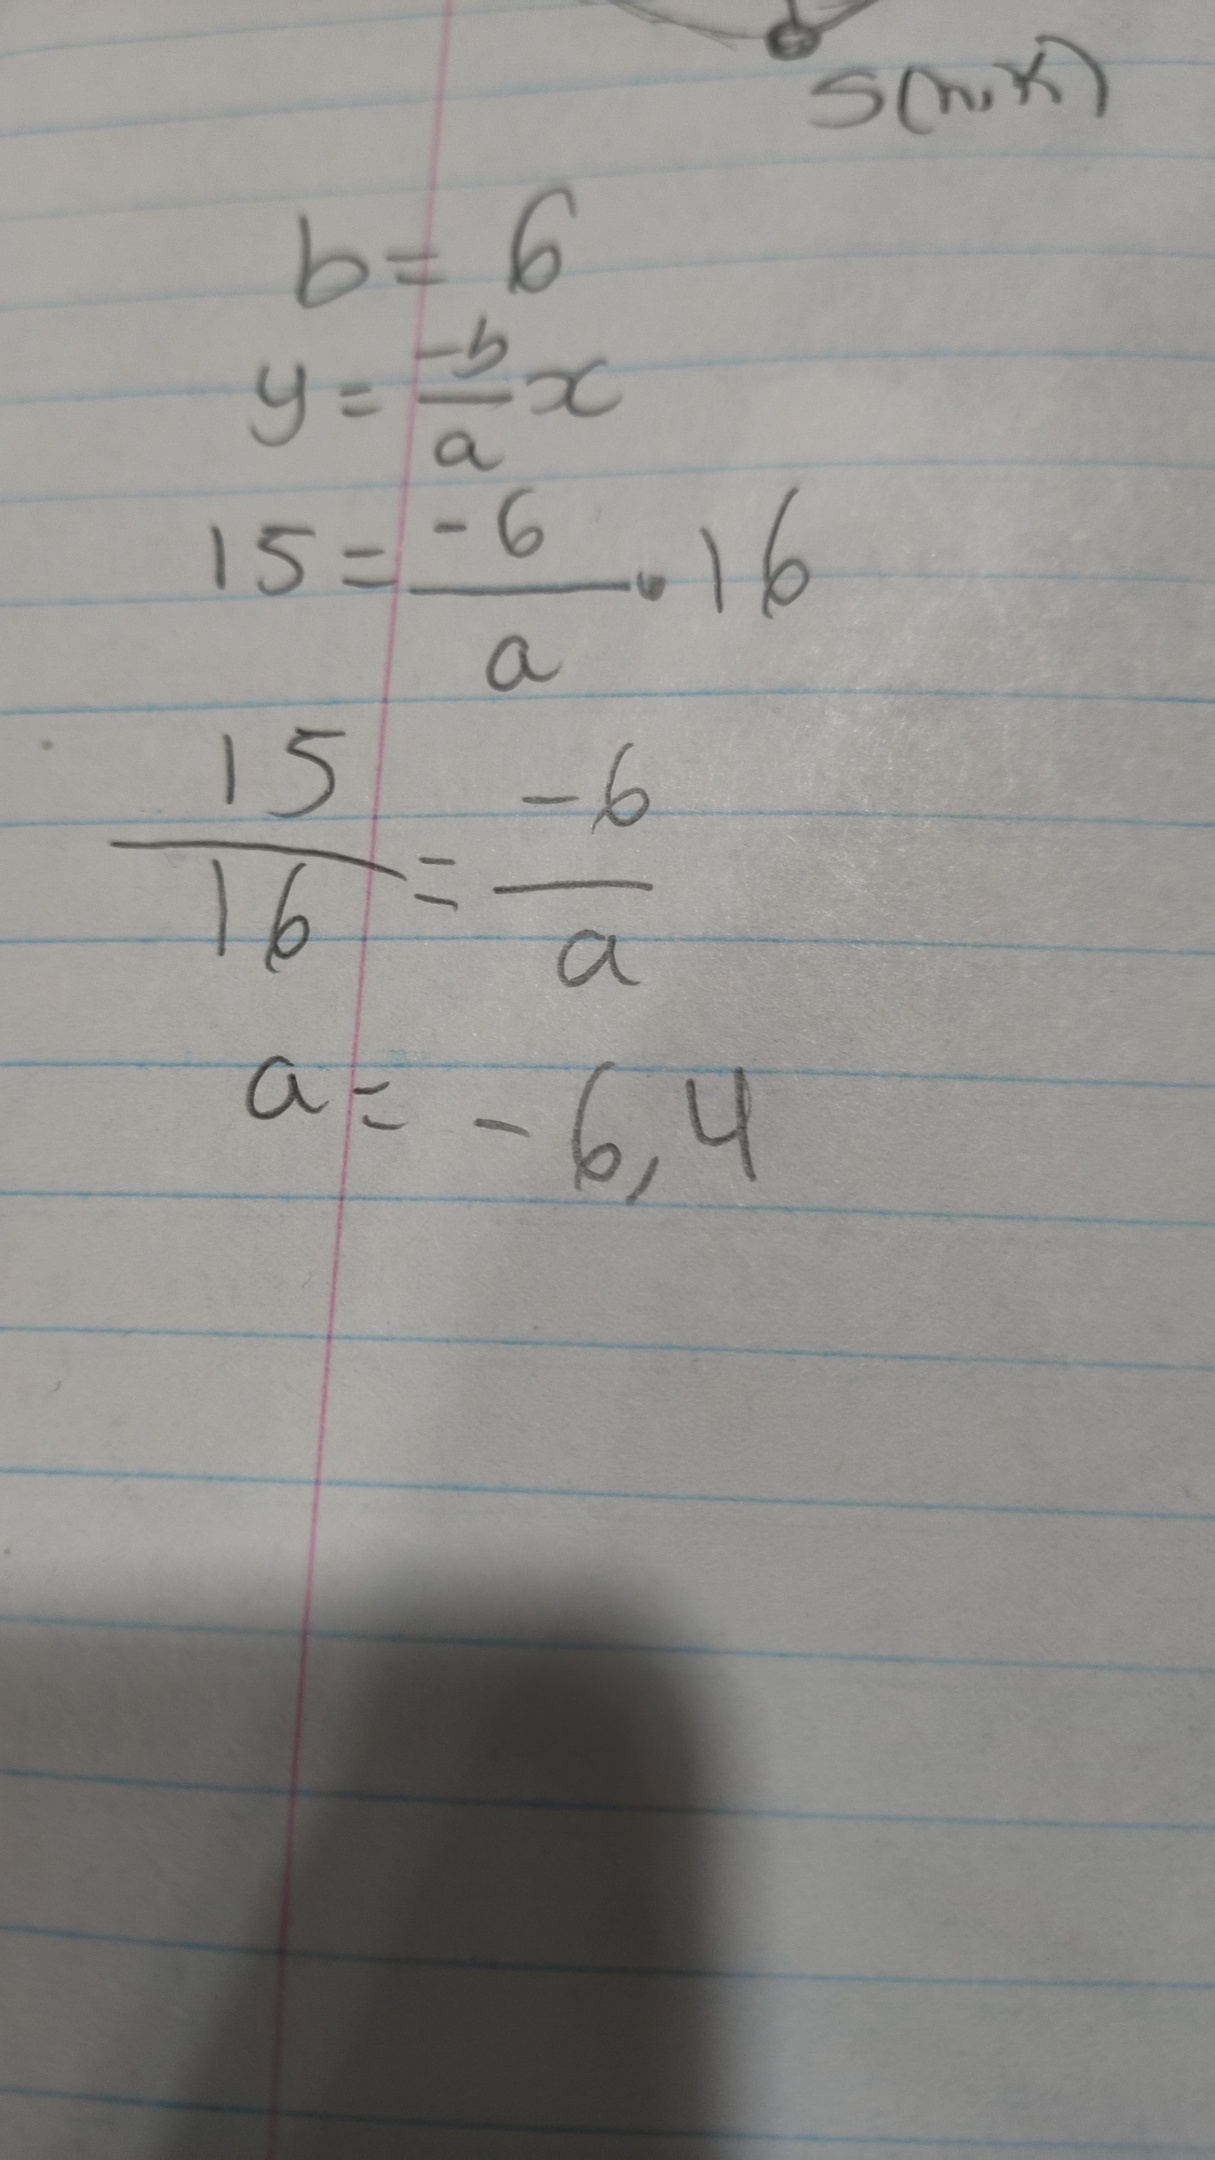 S(n,x)
b = 6
y = -b/a x
15 = -6/a • 16
15/16 = -6/a
a = -6,4